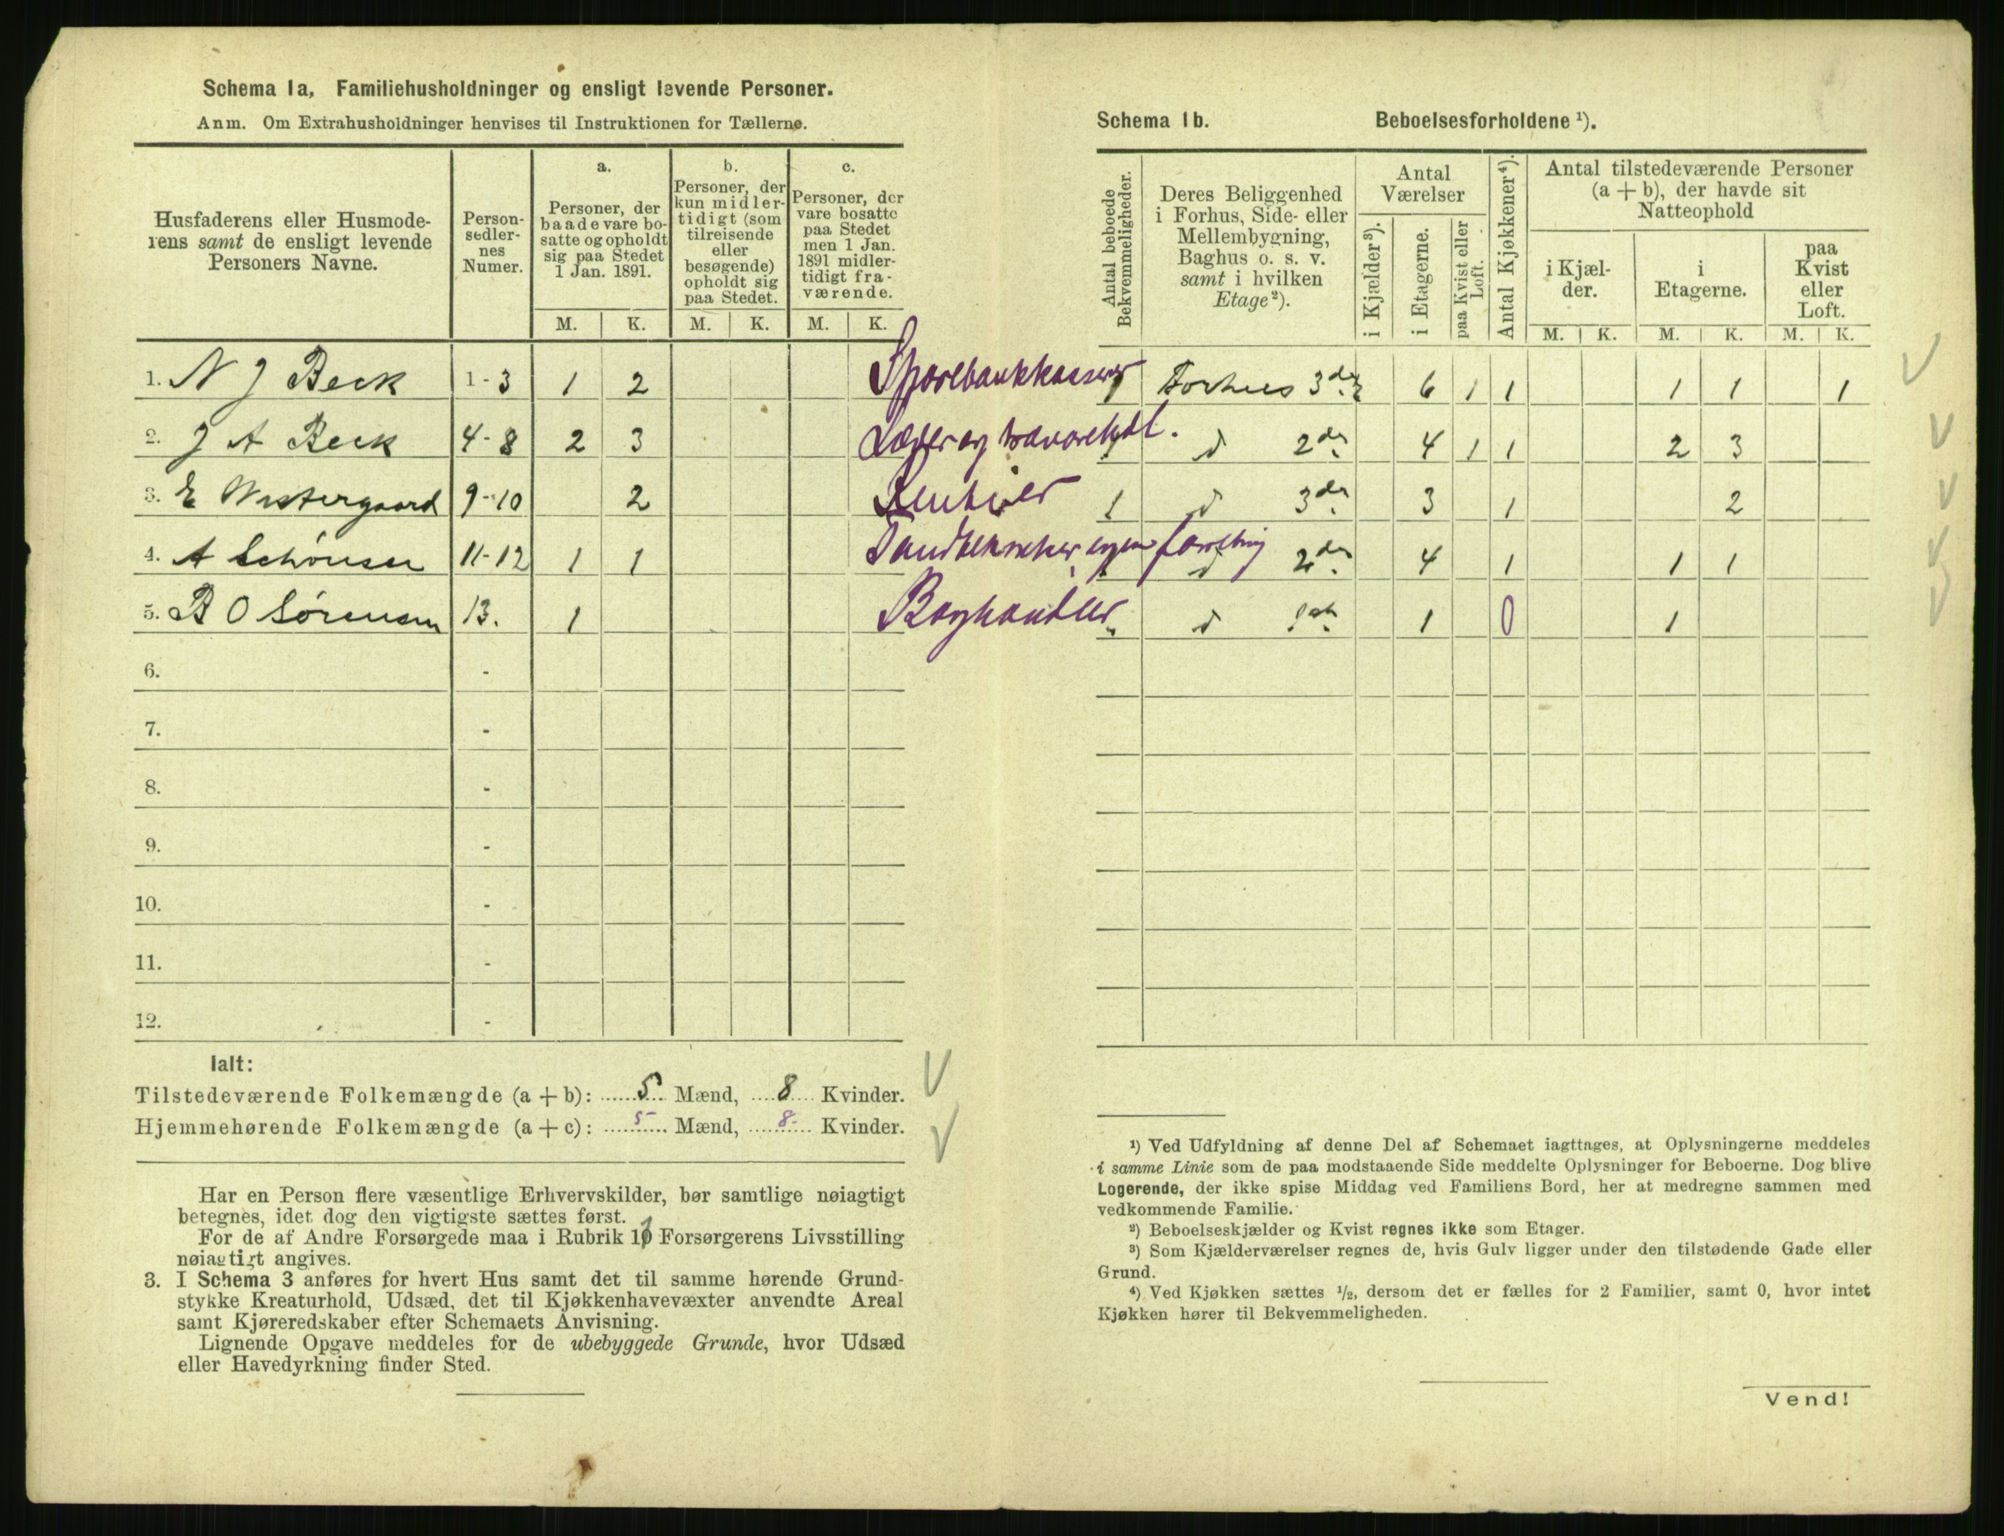 Schema 1a, Familiehusholdninger og ensligt levende Personer.
Anm. Om Extrahusholdninger henvises til Instruktionen for Tællerne.
Husfaderens eller Husmoderens samt de ensligt levende Personers Navne.
Personsedlernes Numer.
a.
Personer, der baade vare bosatte og opholdt sig paa Stedet 1 Jan. 1891.
b.
Personer, der kun midlertidigt (som tilreisende eller besøgende) opholdt sig paa Stedet.
c.
Personer, der vare bosatte paa Stedet men 1 Jan. 1891 midlertidigt fraværende.
M. K. M. K. M. K.
1. N J Beck 1-3 1 2 Sparebankkasserer
2. J A Beck 4-8 2 3
3. E Westergaard 9-10 2 Rentier
4. A Schønser 11-12 1 1
5. B O Sørensen 13. 1 Boghandler
6. -
7. -
8. -
9. -
10. -
11. -
12. -
Ialt:
Tilstedeværende Folkemængde (a + b): 5 Mænd, 8 Kvinder.
Hjemmehørende Folkemængde (a + c): 5 Mænd, 8 Kvinder.
Har en Person flere væsentlige Erhvervskilder, bør samtlige nøiagtigt
betegnes, idet dog den vigtigste sættes først.
For de af Andre Forsørgede maa i Rubrik 11 Forsørgerens Livsstilling
nøiagtigt angives.
3. I Schema 3 anføres for hvert Hus samt det til samme hørende Grund-
stykke Kreaturhold, Udsæd, det til Kjøkkenhavevæxter anvendte Areal
samt Kjøreredskaber efter Schemaets Anvisning.
Lignende Opgave meddeles for de ubebyggede Grunde, hvor Udsæd
eller Havedyrkning finder Sted.
Schema 1b. Beboelsesforholdene ¹).
Antal beboede Bekvemmeligheder.
Deres Beliggenhed i Forhus, Side- eller Mellembygning, Baghus o. s. v. samt i hvilken Etage ²).
Antal Værelser
i Kjælder ³).
i Etagerne.
paa Kvist eller Loft.
Antal Kjøkkener ⁴).
Antal tilstedeværende Personer (a + b), der havde sit Natteophold
i Kjælder.
i Etagerne.
paa Kvist eller Loft.
M. K. M. K. M. K.
1 Forhus 3de 6 1 1 1 1 1
d 2de 4 1 1 2 3
1 d 3de 3 1 2
d 2de 4 1 1 1
d 1ste 1 0 1
¹) Ved Udfyldning af denne Del af Schemaet iagttages, at Oplysningerne meddeles
i samme Linie som de paa modstaaende Side meddelte Oplysninger for Beboerne. Dog blive
Logerende, der ikke spise Middag ved Familiens Bord, her at medregne sammen med
vedkommende Familie.
²) Beboelseskjælder og Kvist regnes ikke som Etager.
³) Som Kjælderværelser regnes de, hvis Gulv ligger under den tilstødende Gade eller
Grund.
⁴) Ved Kjøkken sættes ½, dersom det er fælles for 2 Familier, samt 0, hvor intet
Kjøkken hører til Bekvemmeligheden.
Vend!